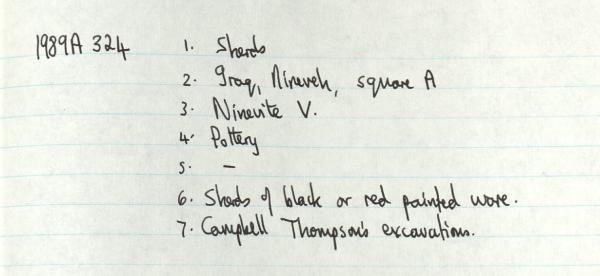 1989A 324 1. Sherds
2. Iraq, Nineveh, square A
3. Ninevite V.
4. Pottery
5. —
6. Sherds of black or red painted ware.
7. Campbell Thompson's excavations.